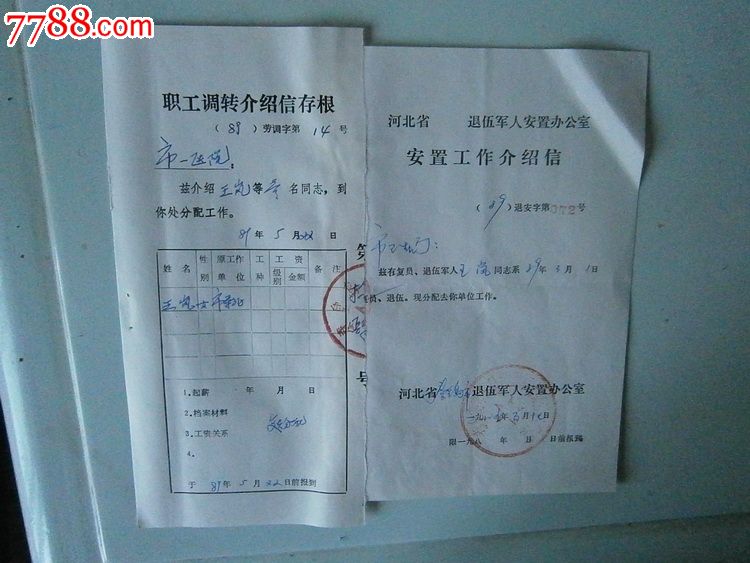 7788.com
职工调转介绍信存根
（89）劳调字第 14 号
市一医院：
兹介绍 王岚 等 壹 名同志，到
你处分配工作。
89年 5 月 22 日
姓名 性别 原工作单位 工种 工资级别 工资金额 备注
王岚 女
1.起薪 年 月 日
2.档案材料
3.工资关系
4.
于 89年 5 月 22 日前报到
第
号
河北省 退伍军人安置办公室
安置工作介绍信
（89）退安字第072号
兹有复员、退伍军人 王岚 同志系 89年 3 月 1 日
复员、退伍。现分配去你单位工作。
河北省 退伍军人安置办公室
一九八 年 月 日
限一九八 年 月 日前报到